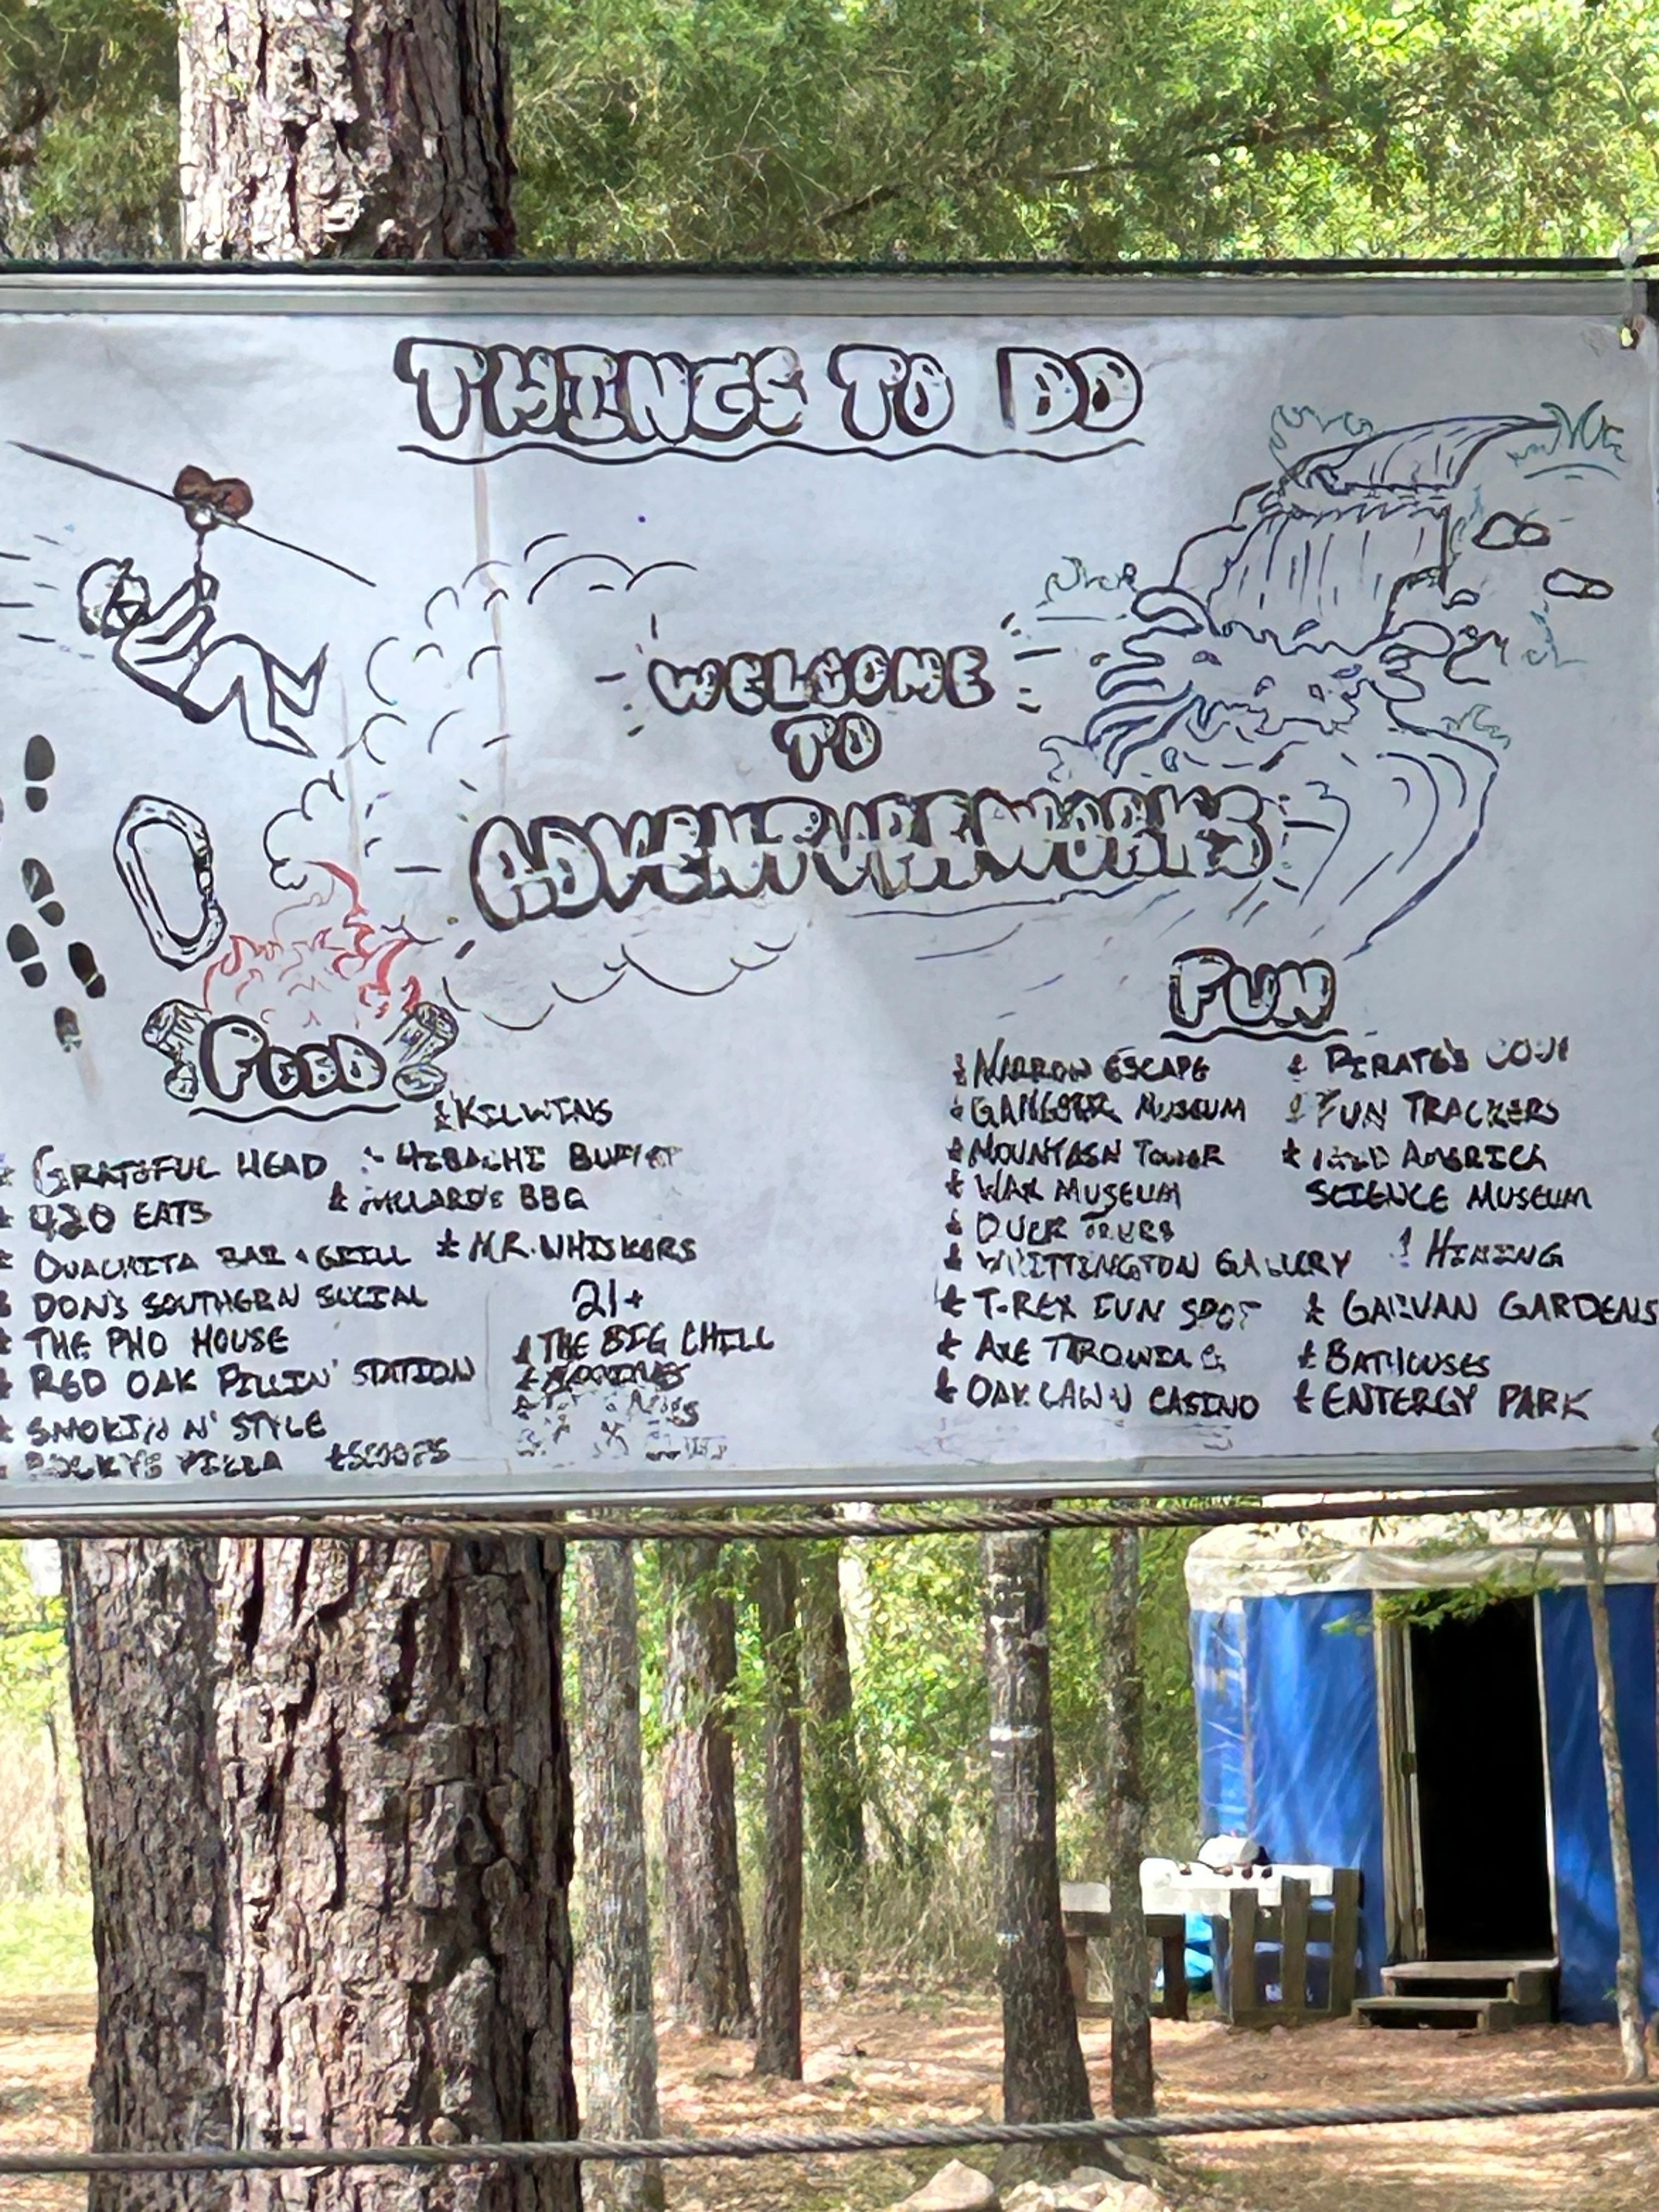 THINGS TO DO
WELCOME
TO
ADVENTUREWORKS
FOOD
KILWINS
GRATEFUL HEAD
HIBACHI BUFFET
420 EATS
BBQ
OUACHITA BAR & GRILL
MR. WHISKERS
DON'S SOUTHERN SOCIAL
THE PHO HOUSE
RED OAK FILLIN' STATION
SMOKIN N' STYLE
ROCKY'S PIZZA
SCOOPS
21+
THE BIG CHILL
FUN
NARROW ESCAPE
GANGSTER MUSEUM
MOUNTAIN TOWER
WAX MUSEUM
DUCK TOURS
WHITTINGTON GALLERY
T-REX FUN SPOT
AXE THROWING
OAKLAWN CASINO
PIRATE'S COVE
FUN TRACKERS
MID AMERICA
SCIENCE MUSEUM
HIKING
GARVAN GARDENS
BATHOUSES
ENTERGY PARK